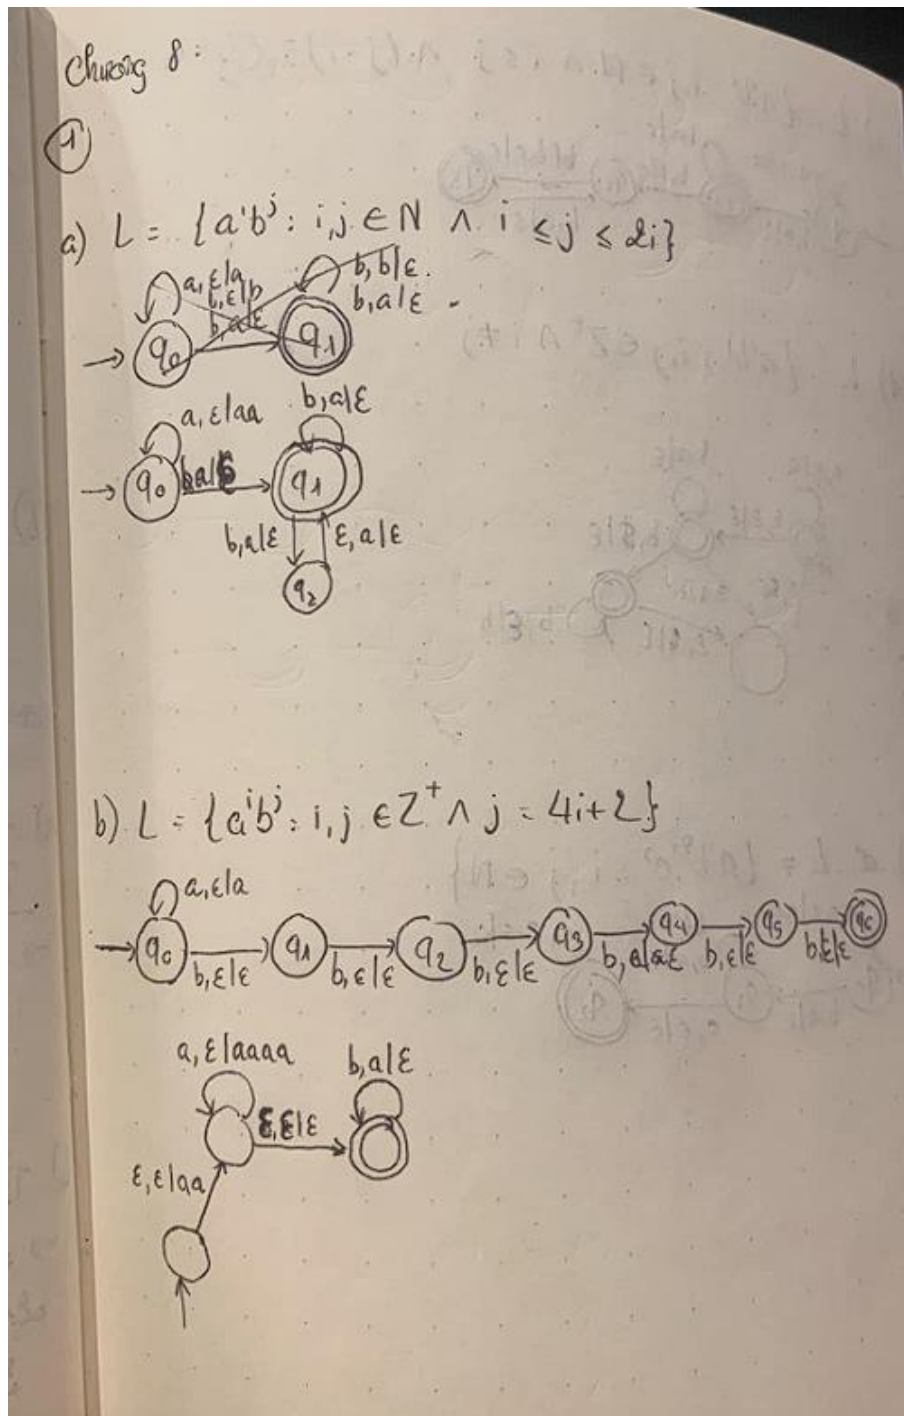 Chương 8:
1
a) L = {aⁱbʲ: i,j ∈ N ∧ i ≤ j ≤ 2i}
a,ε|a
b,ε|b
b,a|ε
b,b|ε.
b,a|ε
q₀
q₁
a,ε|aa
b,a|ε
q₀
q₁
b,a|ε
ε,a|ε
q₂
b) L = {aⁱbʲ: i,j ∈ Z⁺ ∧ j = 4i+2}
a,ε|a
q₀
q₁
q₂
q₃
q₄
q₅
q₆
b,ε|ε
b,ε|ε
b,ε|ε
b,ε|ε
a,ε|aaaa
b,a|ε
ε,ε|ε
ε,ε|aa